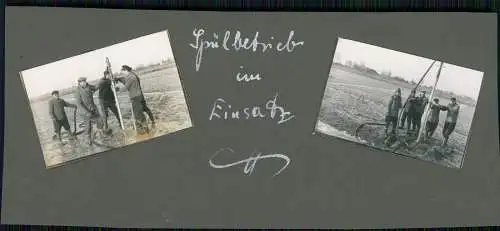 Spülbetrieb
im
Einsatz